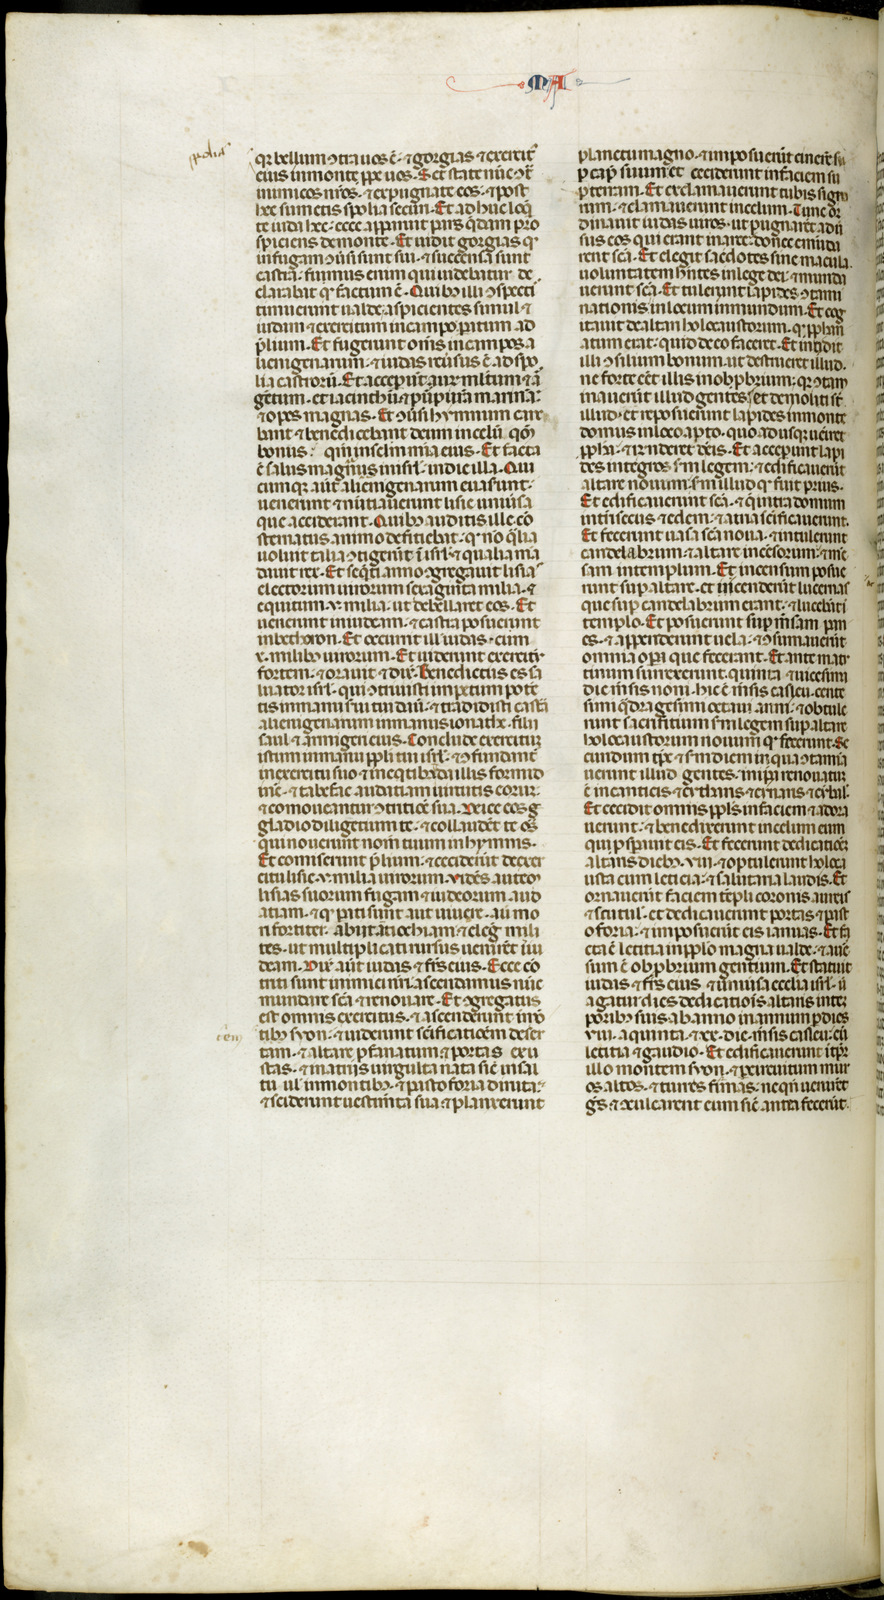 MA
qr bellum ɔtra uos ē. ⁊ gorgias ⁊ exercitꝰ
eius in monte ꝓpe uos. Set state nūc ɔtͣ
inimicos nr̄os. ⁊ expugnate eos. ⁊ post
hec sumetis spolia secuꝝ. Et adhuc loq̄
te iuda hec. ecce apparuit pars q̄dam pro
spiciens de monte. Et uidit gorgias qꝰ
in fugam ɔuersi sunt sui. ⁊ succensa sunt
castra. fumus enim qui uidebatur de
clarabat qꝰ factum ē. Quibꝰ illi ɔspecti
timuerunt ualde. aspicientes simul ⁊
iudam ⁊ exercitum in campo paratum ad
p̄lium. Et fugerunt om̄is in campos a
lienigenarum. ⁊ iudas reūsus ē. ad spo
lia castroꝝ. Et acceperūt aurū multum ⁊ ar
gētum. et iacinthū ⁊ purpura marina.
⁊ opes magnas. Et ɔuersi hymnum cane
bant ⁊ benedicebant deum in celū. qm̄
bonus. qm̄ in sc̄lm mīa eius. Et facta
ē salus magna in isrl̄. in die illa. Qui
cumqꝫ aut̄ alienigenarum euaserunt.
uenerunt ⁊ nuntiauerunt lisie uniūsa
que acciderant. Quibꝰ auditis ille. co
sternatus animo deficiebat. qꝰ nō q̄lia
uoluit talia ɔtigerūt ī isrl̄. ⁊ qualia man
dauit rex. Et seq̄nti anno ɔgregauit lisias
electorum uirorum sexaginta milia. ⁊
equitum .v. milia. ut debellaret eos. Et
uenerunt in iudeam. ⁊ castra posuerunt
in bethoron. Et occurrit ill̄ iudas. cum
.x. milibꝰ uirorum. Et uiderunt exercitū
fortem. ⁊ orauit ⁊ dix̄. Benedictus es sal
uator isrl̄. qui ɔtriuisti impetum poten
tis in manu serui tui dauid. ⁊ tradidisti castra
alienigenarum in manus ionathe. filii
saul. ⁊ armigeri eius. Conclude exercitum
istum in manu ppl̄i tui isrl̄. ⁊ ɔfundantur
in exercitu suo ⁊ in eq̄tibꝰ. Da illis formidi
nē. ⁊ tabefac audatiam uirtutis eorum.
⁊ cōmoueantur ɔtritiōe sua. Deice eos g
gladio diligentium te. ⁊ collaudēt te oēs
qui nouerunt nom̄ tuum in hymnis.
Et comiserunt p̄lium. ⁊ ceciderūt de exer
citu lisie .v. milia uirorum. Vidēs autem
lisias suorum fugam ⁊ iudeorum aud
atiam. ⁊ qꝰ parati sunt aut uiuere. aut mo
ri fortiter. abiit antiochiam ⁊ elegit mili
tes. ut multiplicati rursus uenirēt ī iu
deam. Dix̄ aūt iudas ⁊ fr̄es eius. Ecce con
triti sunt inimici nr̄i. ascendamus nūc
mundare sc̄a ⁊ renouare. Et ɔgregatus
est omnis exercitus. ⁊ ascenderunt in mō
tibꝰ syon. ⁊ uiderunt sc̄ificatiōem deser
tam. ⁊ altare ꝓfanatum ⁊ portas exu
stas. ⁊ in atriis uirgulta nata sic̄ in sal
tu ul̄ in montibꝰ. ⁊ pastoforia diruta.
⁊ sciderunt uestim̄ta sua. ⁊ planxerunt
planctu magno. ⁊ imposuerūt cinerē su
per caput suum. et ceciderunt in faciem su
per terram. Et exclamauerunt tubis signo
rum. ⁊ clamauerunt in celum. Tunc or
dinauit iudas uiros. ut pugnarēt aduer
sus eos qui erant in arce. donec emunda
rent sc̄a. Et elegit sac̄dotes sine macula.
uoluntatem habentes in lege dei. ⁊ munda
uerunt sc̄a. Et tulerunt lapides ɔtami
nationis in locum inmundum. Et cog
itauit de altari holocaustorum. qꝰ ꝓphan
atum erat. quid de eo faceret. Et incidit
illi ɔsilium bonum. ut destrueret illud.
ne forte eēt illis in obprobrium. quia ɔtam
inauerūt illud gentes. ⁊ demoliti sūt
illud. et reposuerunt lapides in monte
domus in loco apto. quo adusqꝫ ueniret
ꝓpha. ⁊ rn̄deret de eis. Et acceperunt lapi
des integros sm̄ legem. ⁊ edificauerūt
altare nouum. sm̄ illud qꝰ fuit prius.
Et edificauerunt sc̄a. ⁊ q̄ intra domum
intrisecus. ⁊ edem. ⁊ atria sc̄ificauerunt.
Et fecerunt uasa sc̄a noua. ⁊ intulerunt
candelabrum. ⁊ altare incēsorum. ⁊ men
sam in templum. Et incensum posue
runt super altare. et incenderūt lucernas
que super candelabrum erant. ⁊ lucebāt ī
templo. Et posuerunt super mēsam pan
es. ⁊ appenderunt uela. ⁊ ɔsumauerūt
omnia opera que fecerant. Et ante matu
tinum surrexerunt. quinta ⁊ uicesima
die mēsis noni. hic ē mēsis casleu. cente
simi q̄dragesimi octaui anni. ⁊ obtule
runt sacrificium sm̄ legem super altare
holocaustorum nouum qꝰ fecerunt. Se
cundum tp̄r ⁊ sm̄ diem in qua ɔtamina
uerunt illud gentes. in ipsa renouatum
ē in canticis. ⁊ citharis. ⁊ cinaris ⁊ cimbal.
Et cecidit omnis ppl̄s in faciem ⁊ adora
uerunt. ⁊ benedixerunt in celum eum
qui prosperauit eis. Et fecerunt dedicatiōem
altaris diebꝰ .viii. ⁊ optulerunt holoca
usta cum leticia. ⁊ salutaria laudis. Et
ornauerunt faciem tēpli coronis aureis
⁊ scutul̄. et dedicauerunt portas ⁊ past
oforia. ⁊ imposuerūt eis ianuas. Et fa
cta ē letitia in ppl̄o magna ualde. ⁊ auer
sum ē obprobrium gentium. Et statuit
iudas ⁊ fr̄es eius. ⁊ uniuersa ecclīa isrl̄. ut
agatur dies dedicatiōis altaris in tem
poribꝰ suis ab anno in annum per dies
.viii. a quinta ⁊ xx. die mēsis casleu. cū
letitia ⁊ gaudio. Et edificauerunt ī tp̄r
illo montem syon. ⁊ per circuitum mur
os altos. ⁊ turres firmas. ne qn̄ uenirēt
gentes ⁊ ɔculcarent eum sic̄ antea fecerūt.